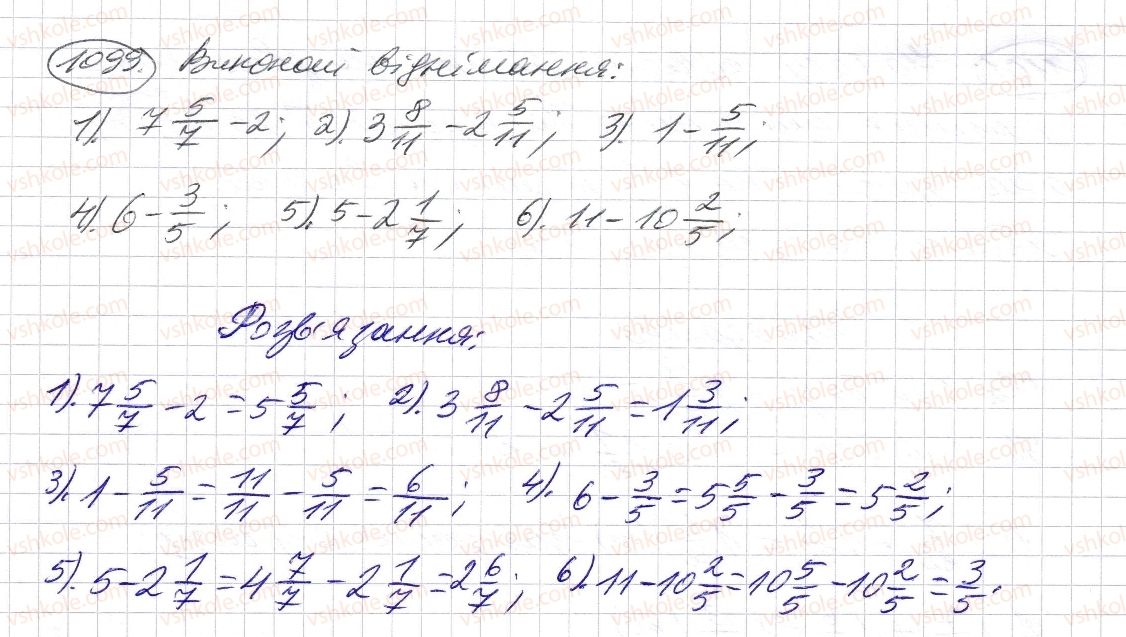 1099. Виконай віднімання:
1). 7 5/7 - 2; 2). 3 8/11 - 2 5/11; 3). 1 - 5/11;
4). 6 - 3/5; 5). 5 - 2 1/7; 6). 11 - 10 2/5;
Розв'язання:
1). 7 5/7 - 2 = 5 5/7; 2). 3 8/11 - 2 5/11 = 1 3/11;
3). 1 - 5/11 = 11/11 - 5/11 = 6/11; 4). 6 - 3/5 = 5 5/5 - 3/5 = 5 2/5;
5). 5 - 2 1/7 = 4 7/7 - 2 1/7 = 2 6/7; 6). 11 - 10 2/5 = 10 5/5 - 10 2/5 = 3/5.
vshkole.com